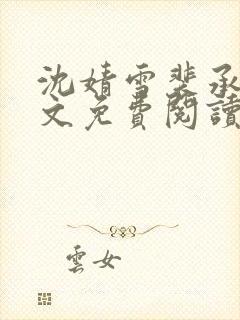 沈婧雪裴承
文免費閱讀
雲女